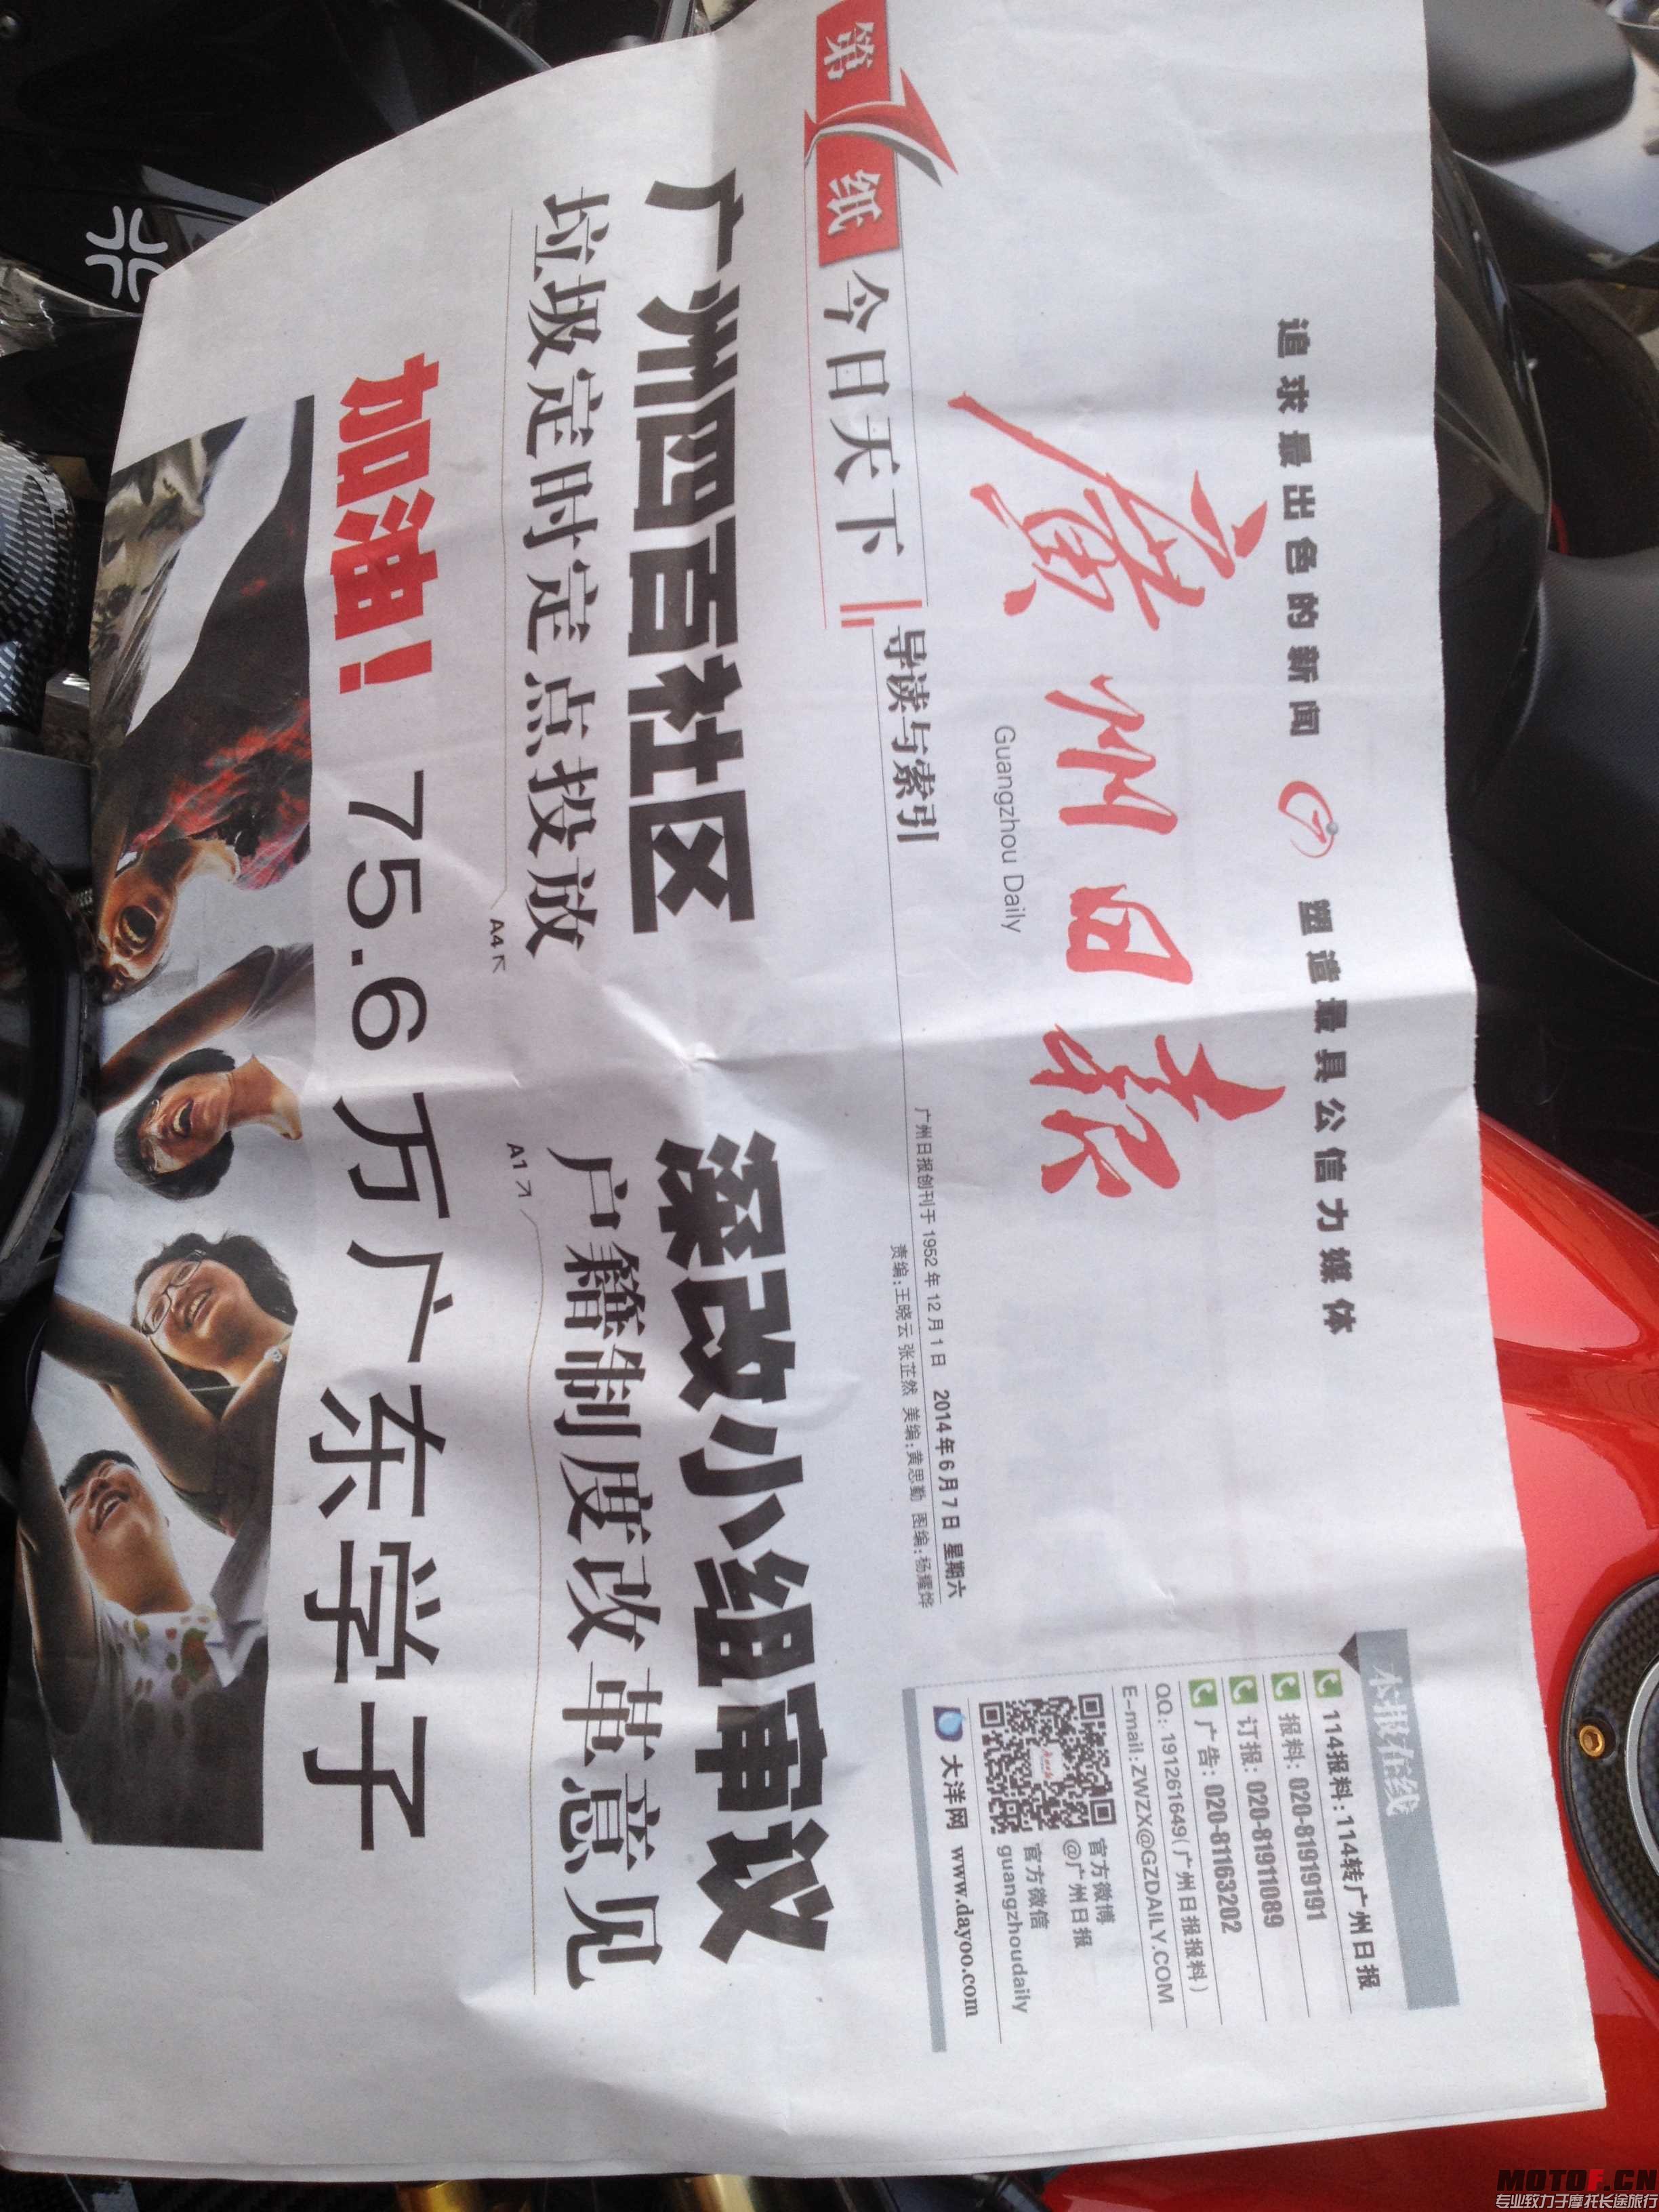 追求最出色的新闻 塑造最具公信力媒体
廣州日报
Guangzhou Daily
本报在线
114报料:114转广州日报
报料: 020-81919191
订报: 020-81911089
广告: 020-81163202
QQ: 191261649(广州日报报料)
E-mail:ZWZX@GZDAILY.COM
官方微博
@广州日报
官方微信
guangzhoudaily
大洋网 www.dayoo.com
第1纸 今日天下 导读与索引
广州日报创刊于 1952 年 12 月 1 日 2014 年 6 月 7 日 星期六
责编:王晓云 张芷然 美编:黄思勤 图编:杨耀烨
广州四百社区
垃圾定时定点投放
A4
深改小组审议
户籍制度改革意见
A1
加油! 75.6万广东学子
MOTOF.CN
专业致力于摩托长途旅行